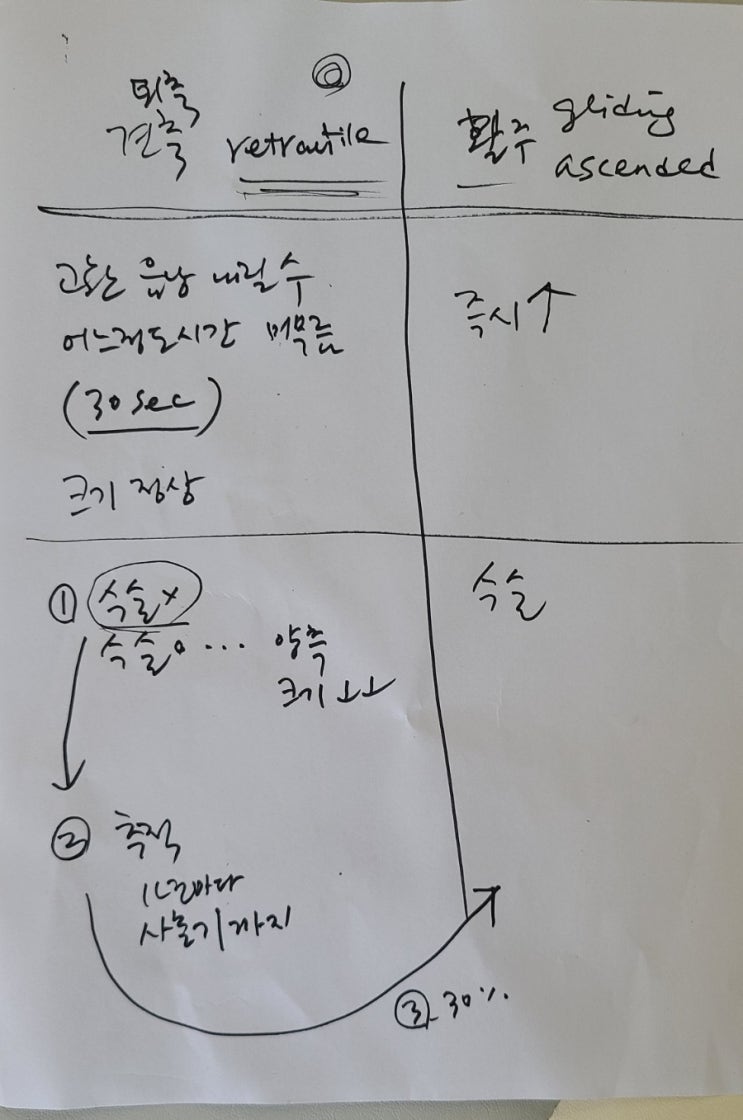 퇴축
견축 retractile
활주 gliding
ascended
고환 음낭 내릴 수
어느정도시간 머무름
(30 sec)
크기 정상
즉시↑
① 수술×
수술o ... 양측
크기↓↓
수술
② 추적
1년마다
사춘기까지
③ 30%